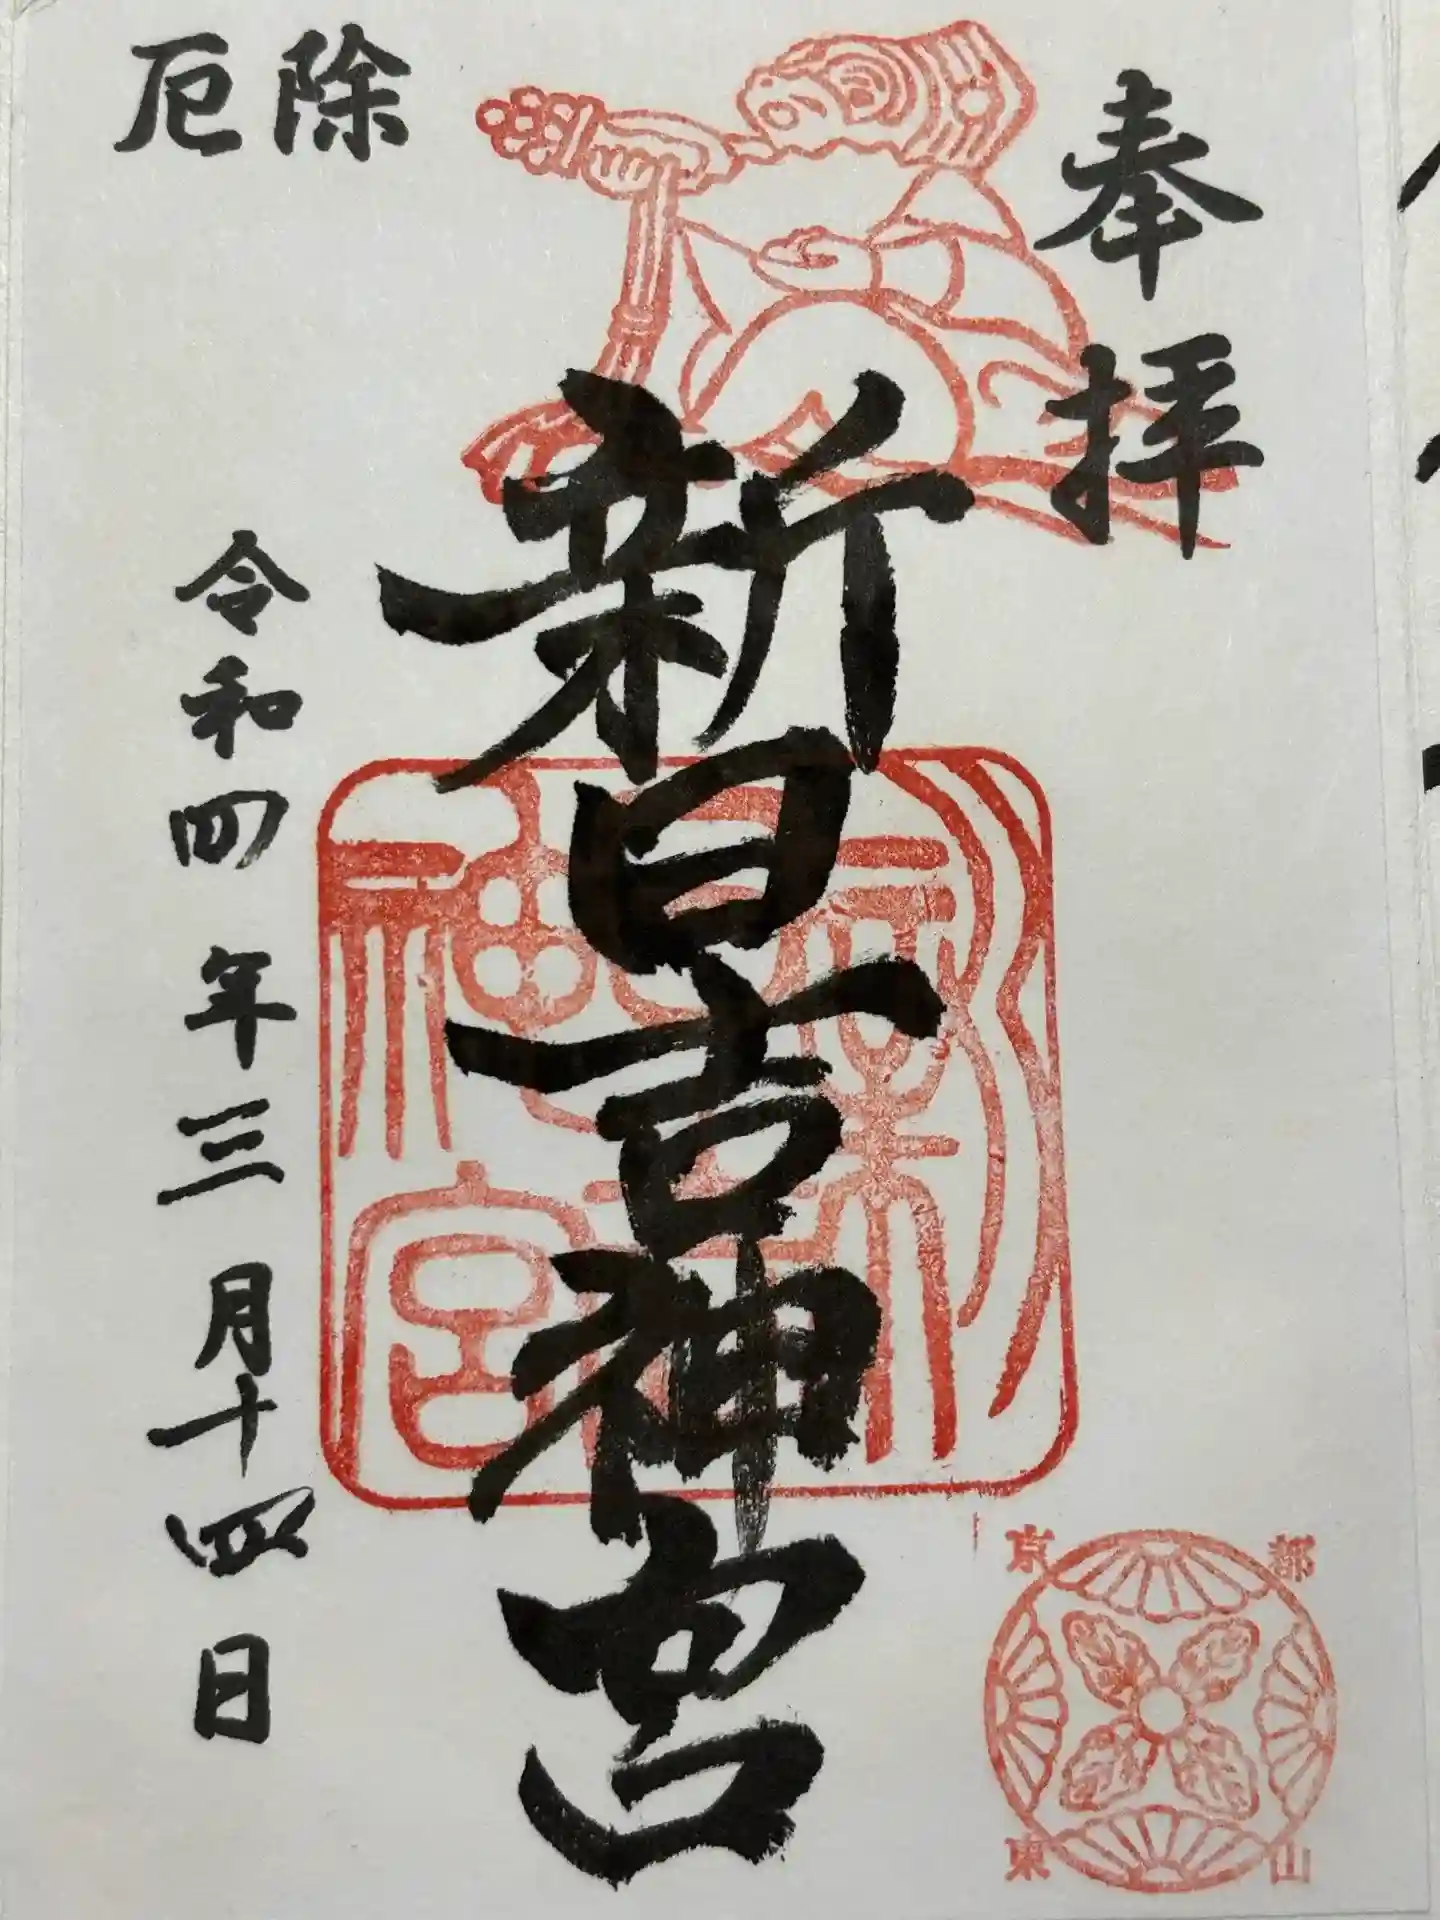 奉拝
新日吉神宮
厄除
令和四年三月十四日
京都
東山